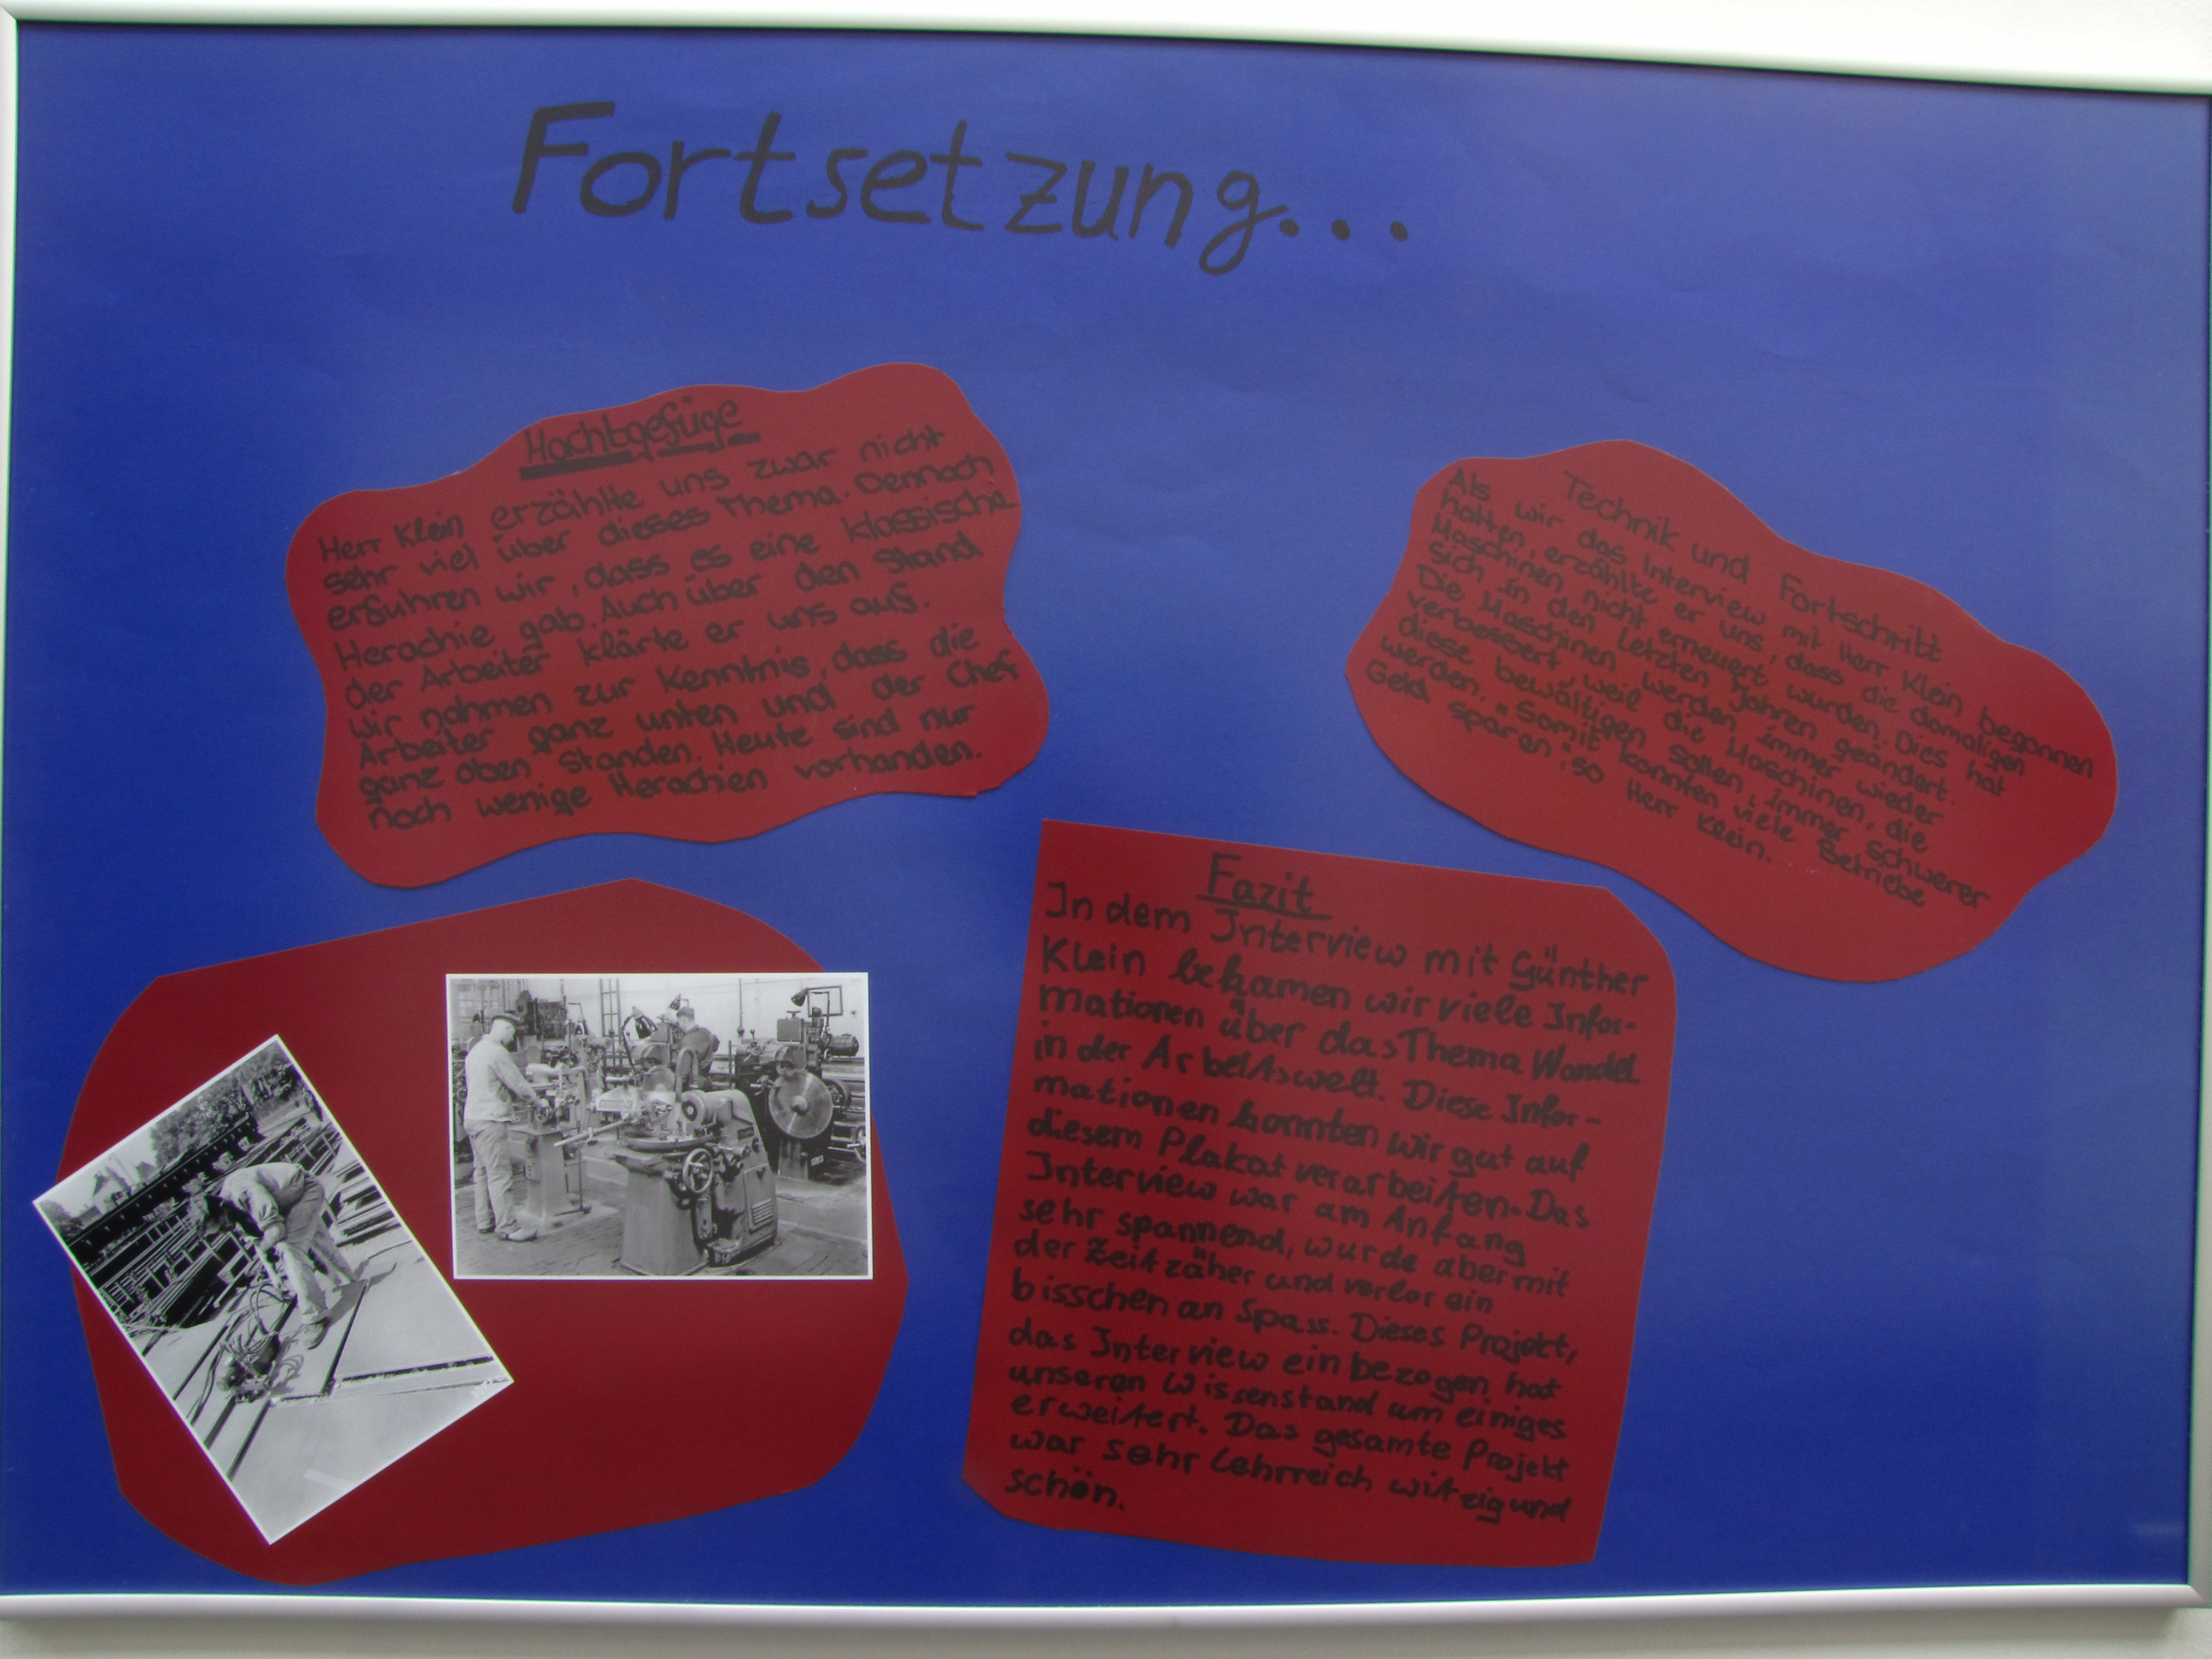 Fortsetzung...
Machtgefüge
Herr Klein erzählte uns zwar nicht
sehr viel über dieses Thema. Dennoch
erfuhren wir, dass es eine klassische
Herachie gab. Auch über den Stand
der Arbeiter klärte er uns auf.
Wir nahmen zur Kenntnis, dass die
Arbeiter ganz unten und der Chef
ganz oben standen. Heute sind nur
noch wenige Herachien vorhanden.
Technik und Fortschritt
Als wir das Interview mit Herr Klein begonnen
hatten, erzählte er uns, dass die damaligen
Maschinen nicht erneuert wurden. Dies hat
sich in den letzten Jahren geändert.
Die Maschinen werden immer wieder
verbessert, weil die Maschinen, die
diese bewältigen sollen, immer schwerer
werden. "Somit konnten viele Betriebe
Geld sparen", so Herr Klein.
Fazit
In dem Interview mit Günther
Klein bekamen wir viele Infor-
mationen über das Thema Wandel
in der Arbeitswelt. Diese Infor-
mationen konnten wir gut auf
diesem Plakat verarbeiten. Das
Interview war am Anfang
sehr spannend, wurde aber mit
der Zeit zäher und verlor ein
bisschen an Spass. Dieses Projekt,
das Interview einbezogen, hat
unseren Wissenstand um einiges
erweitert. Das gesamte Projekt
war sehr lehrreich witzig und
schön.